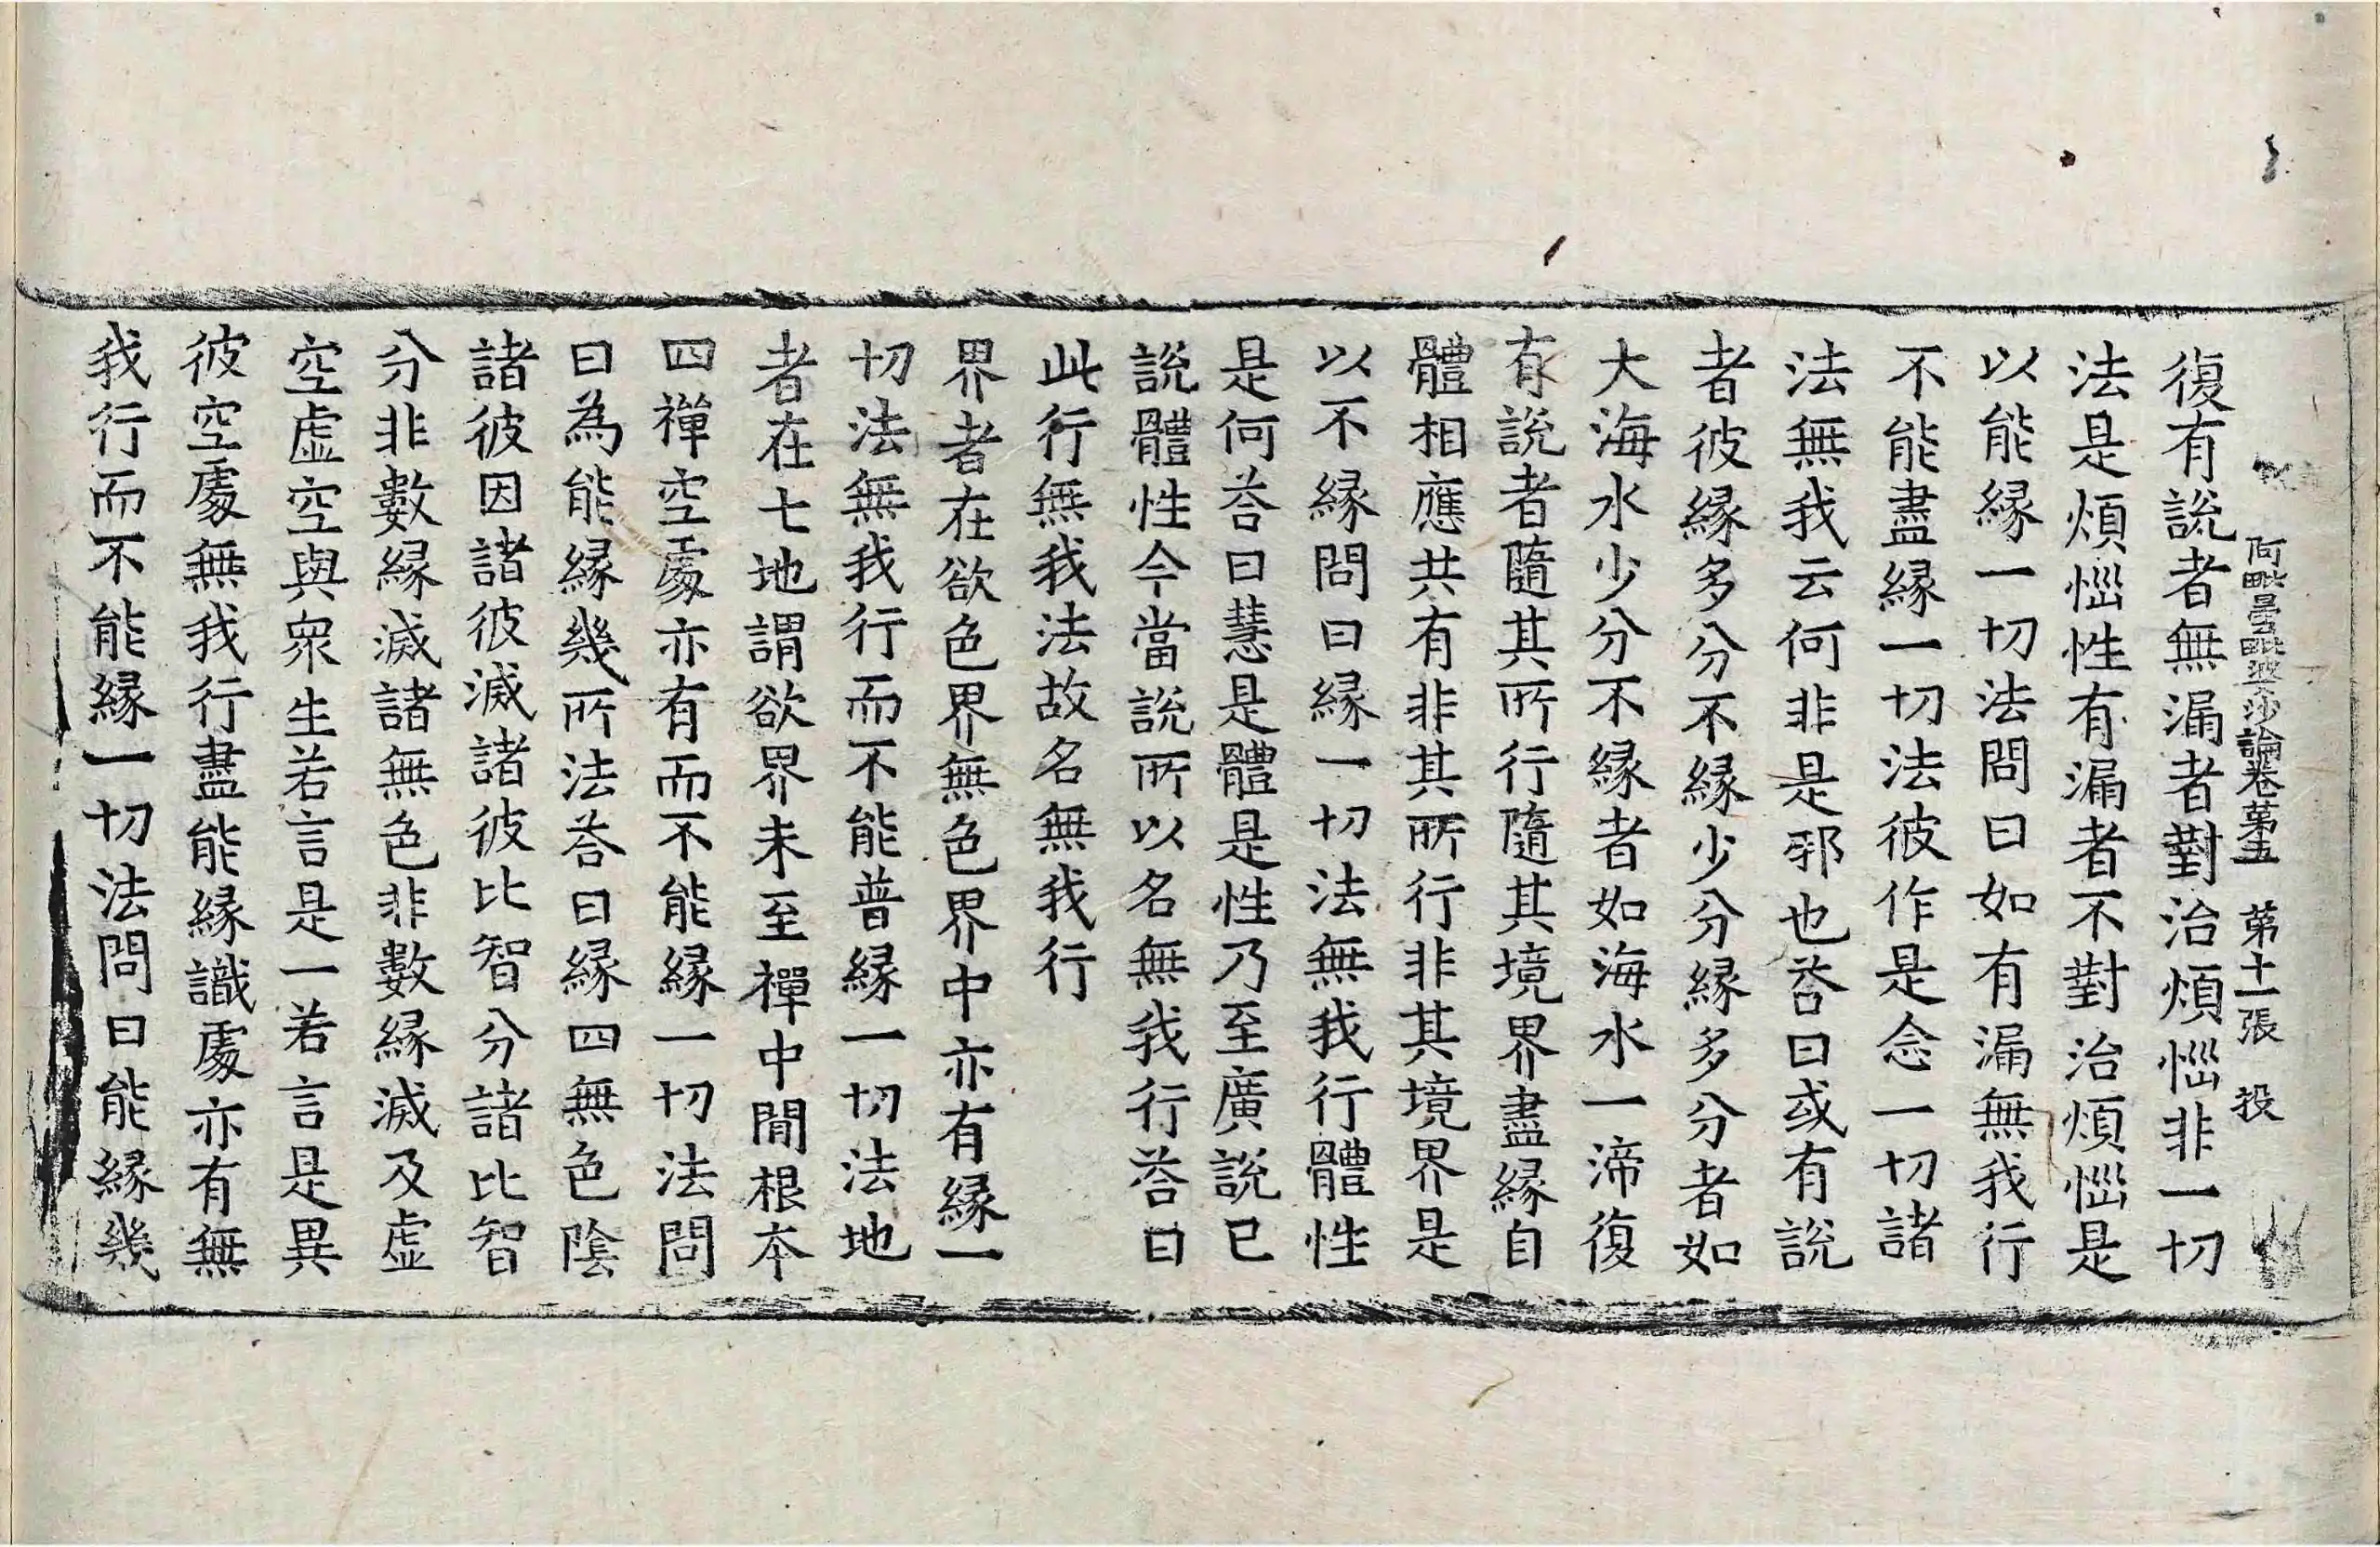 阿毗曇毗婆沙論卷第五　第十一張　投
復有說者無漏者對治煩惱非一切
法是煩惱性有漏者不對治煩惱是
以能緣一切法問曰如有漏無我行
不能盡緣一切法彼作是念一切諸
法無我云何非是邪也荅曰或有說
者彼緣多分不緣少分緣多分者如
大海水少分不緣者如海水一渧復
有說者隨其所行隨其境界盡緣自
體相應共有非其所行非其境界是
以不緣問曰緣一切法無我行體性
是何荅曰慧是體是性乃至廣說已
說體性今當說所以名無我行荅曰
此行無我法故名無我行
界者在欲色界無色界中亦有緣一
切法無我行而不能普緣一切法地
者在七地謂欲界未至禪中間根本
四禪空處亦有而不能緣一切法問
曰為能緣幾所法荅曰緣四無色陰
諸彼因諸彼滅諸彼比智分諸比智
分非數緣滅諸無色非數緣滅及虛
空虛空與衆生若言是一若言是異
彼空處無我行盡能緣識處亦有無
我行而不能緣一切法問曰能緣幾